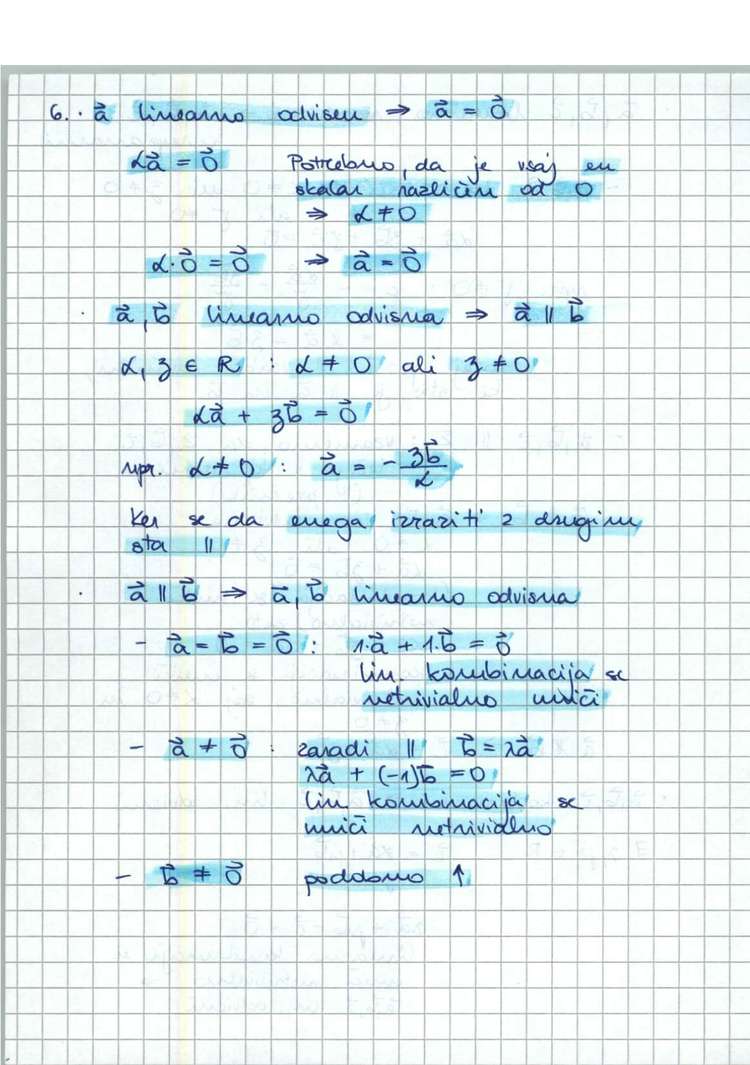 6. · a⃗ linearno odvisen ⇒ a⃗ = 0⃗
αa⃗ = 0⃗ Potrebno, da je vsaj en
skalar različen od 0
⇒ α ≠ 0
α·0⃗ = 0⃗ ⇒ a⃗ = 0⃗
· a⃗, b⃗ linearno odvisna ⇒ a⃗ || b⃗
α, ʒ ∈ R : α ≠ 0 ali ʒ ≠ 0
αa⃗ + ʒb⃗ = 0⃗
npr. α ≠ 0 : a⃗ = - ʒb⃗/α
Ker se da enega izraziti z drugim
sta ||
· a⃗ || b⃗ ⇒ a⃗, b⃗ linearno odvisna
- a⃗ = b⃗ = 0⃗ : 1·a⃗ + 1·b⃗ = 0⃗
lin. kombinacija se
netrivialno uniči
- a⃗ ≠ 0⃗ : zaradi || b⃗ = λa⃗
λa⃗ + (-1)b⃗ = 0
lin kombinacija se
uniči netrivialno
- b⃗ ≠ 0⃗ podobno ↑